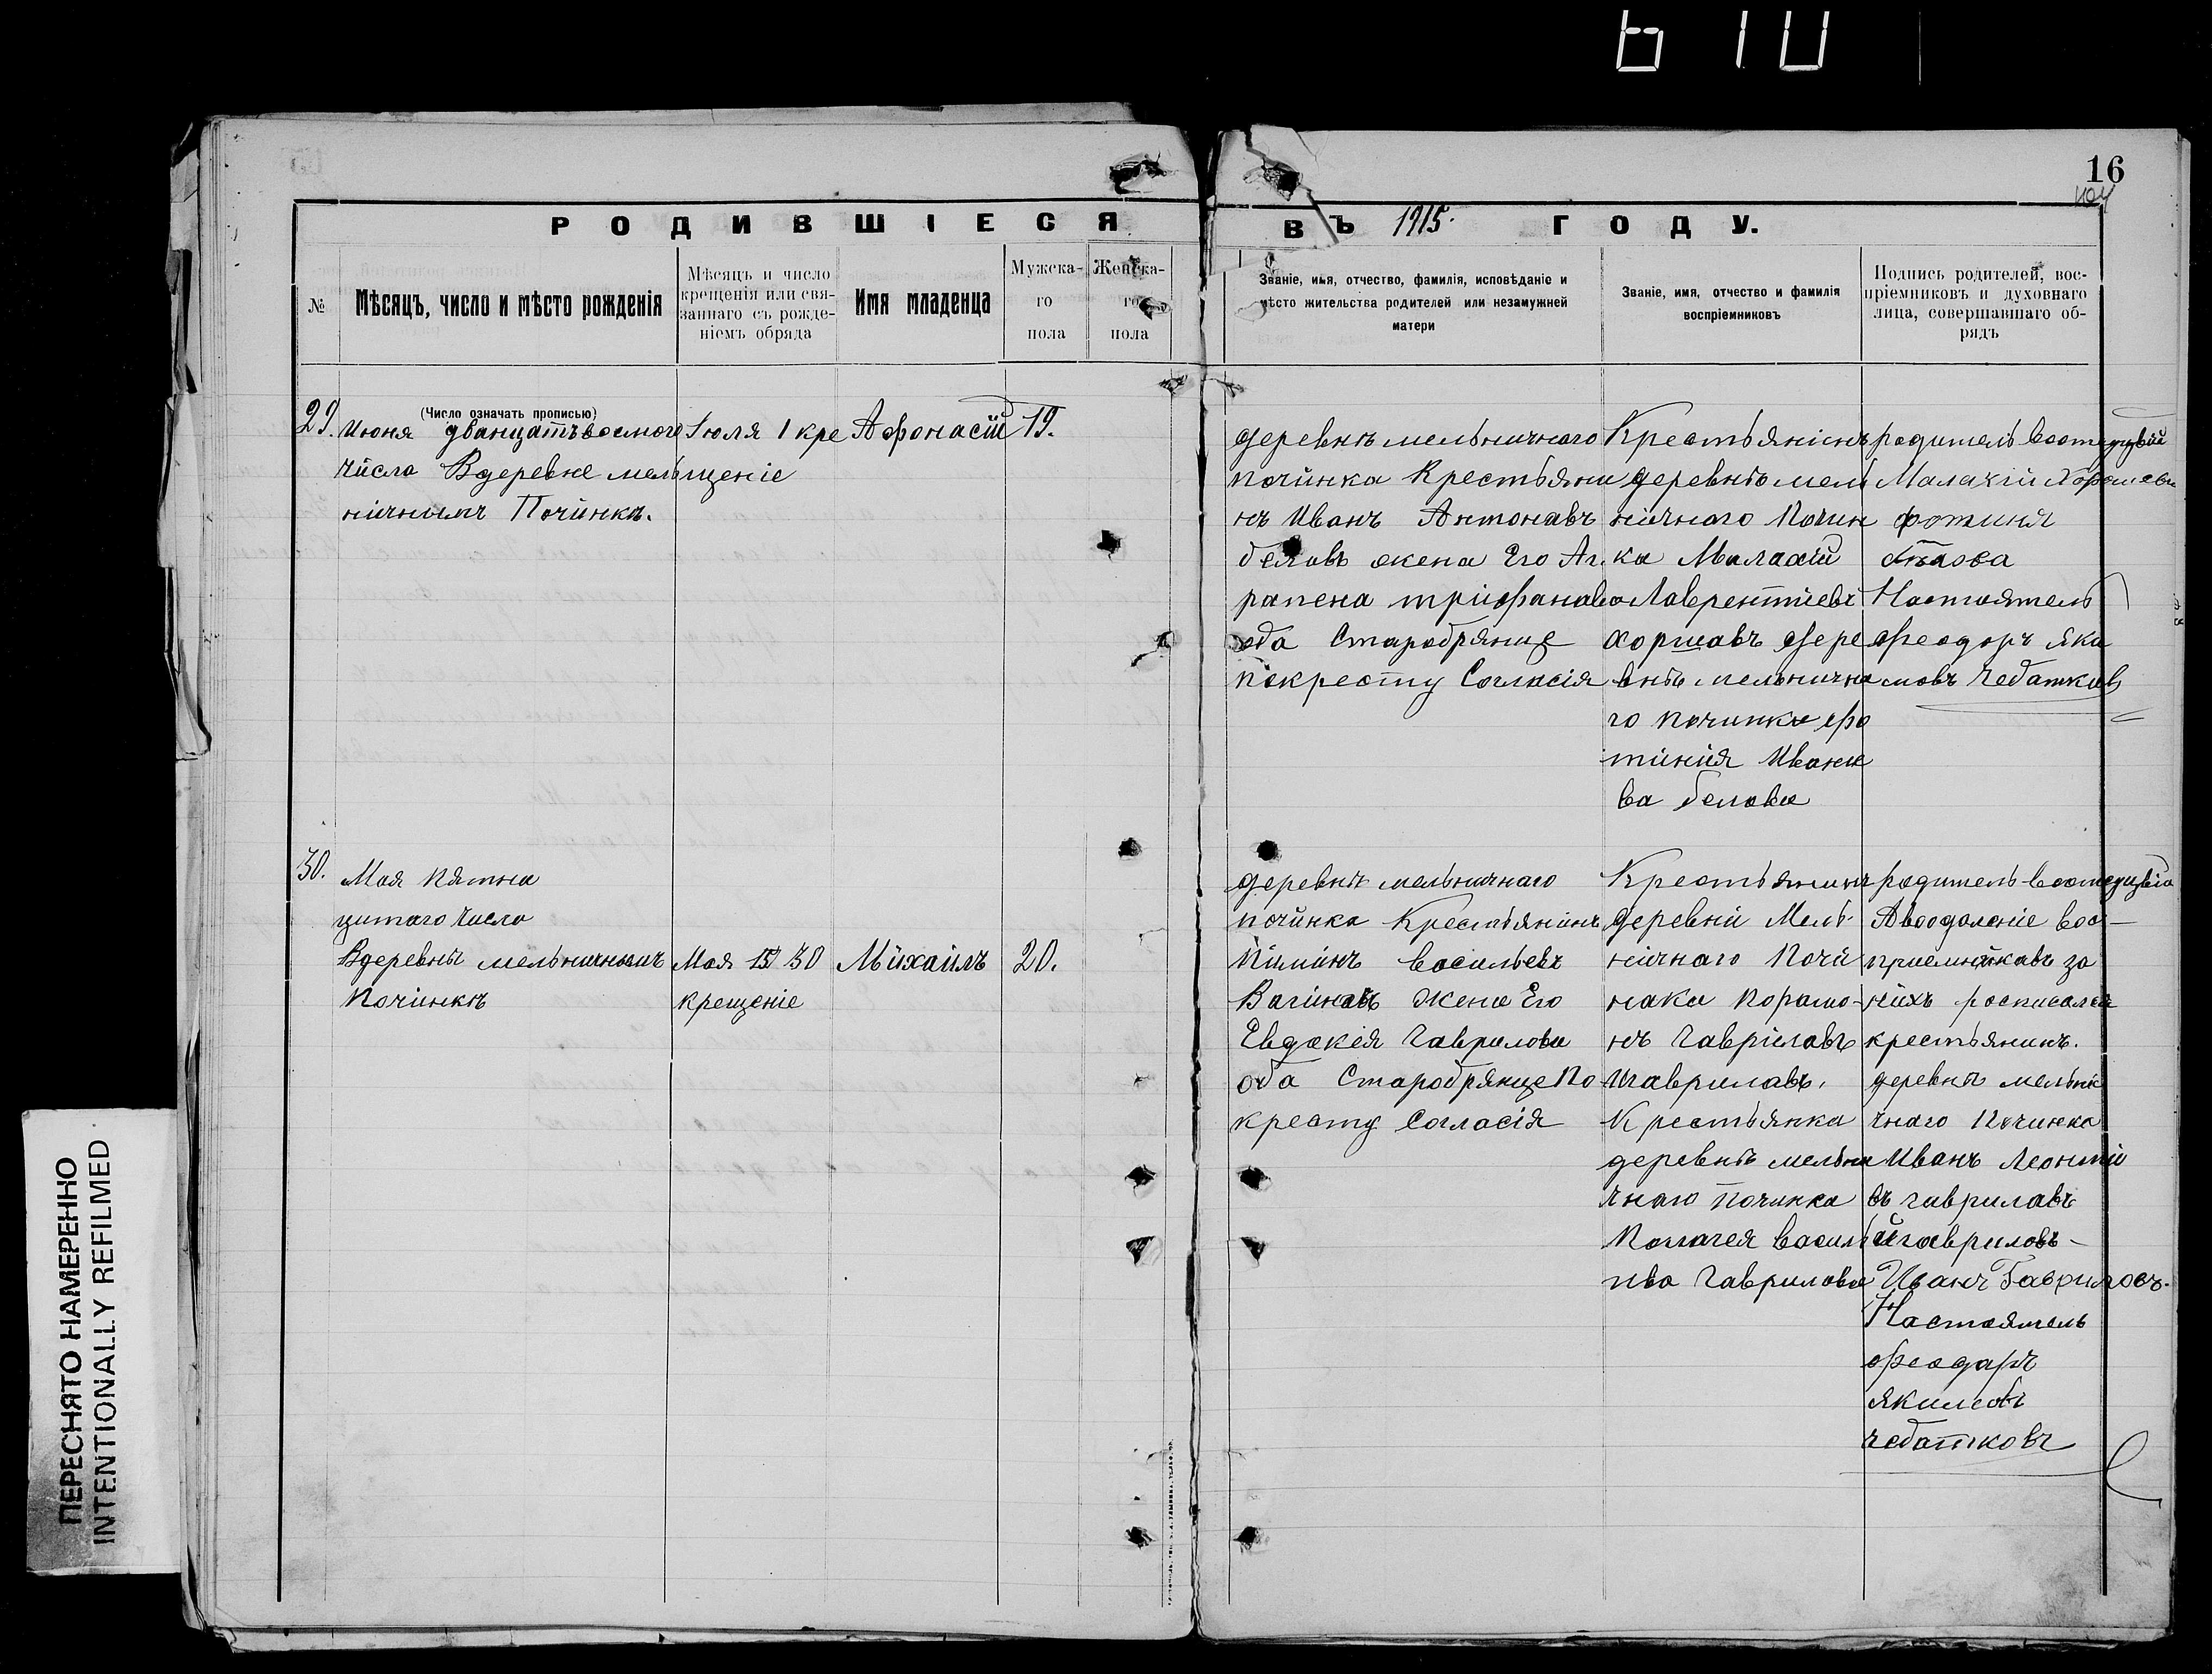 16
РОДИВШІЕСЯ
ВЪ 1915. ГОДУ.
№
Мѣсяцъ, число и мѣсто рожденія
Мѣсяцъ и число
крещенія или свя-
заннаго съ рожде-
ніемъ обряда
Имя младенца
Мужска-
го
пола
Женска-
го
пола
Званіе, имя, отчество, фамилія, исповѣданіе и
мѣсто жительства родителей или незамужней
матери
Званіе, имя, отчество и фамилія
воспріемниковъ
Подпись родителей, вос-
пріемниковъ и духовнаго
лица, совершавшаго об-
рядъ
29.
(Число означать прописью)
Июня дванцатьвосмого
числа Вдеревне мель
ничнымъ Починкѣ.
Іюля 1 кре
щеніе
Афонасій
19.
деревнѣ мельничнаго
починка Крестьяни
нъ Иванъ Антонавъ
беловъ жена Его Аг
рапена трифанава
оба Старобрянце
покресту Согласія
Крестьянінъ
деревнѣ мель
ничнаго Почин
ка Малахій
Лаврентіевъ
хоршавъ дере
внѣ мельнична
го починка фо
тинія Ивана
ва белова
родитель
Малахій
фотиния
Настоятель
Феодоръ Яки
мовъ Чебатков
30.
Мая Пятна
цатаго Число
Вдеревнѣ мельничнымъ
Починкѣ
Мая 15 30
крещеніе
Михаилъ
20.
деревнѣ мельничнаго
починка Крестьянинъ
Пиминъ Васильевъ
Вагиновъ Жена Его
Евдокея Гаврилова
оба Старобрянце По
кресту Согласія
Крестьянинъ
деревни Мель
ничнаго Почи
нака Парамо-
нъ Гавріловъ
Гаврилавъ.
Крестьянка
деревнѣ мельни
чнаго Починка
Палагея Василь
ива Гаврилова
родитель
вос-
приемникавъ за
нихъ росписался
крестьянинъ.
деревнѣ мельни
чнаго Починка
Иванъ Леонтій
въ гаврилавъ
гавриловъ-
Иванъ Гавриловъ.
Настоятель
Феодаръ
Якимовъ
Чебатковъ
ПЕРЕСНЯТО НАМЕРЕННО
INTENTIONALLY REFILMED